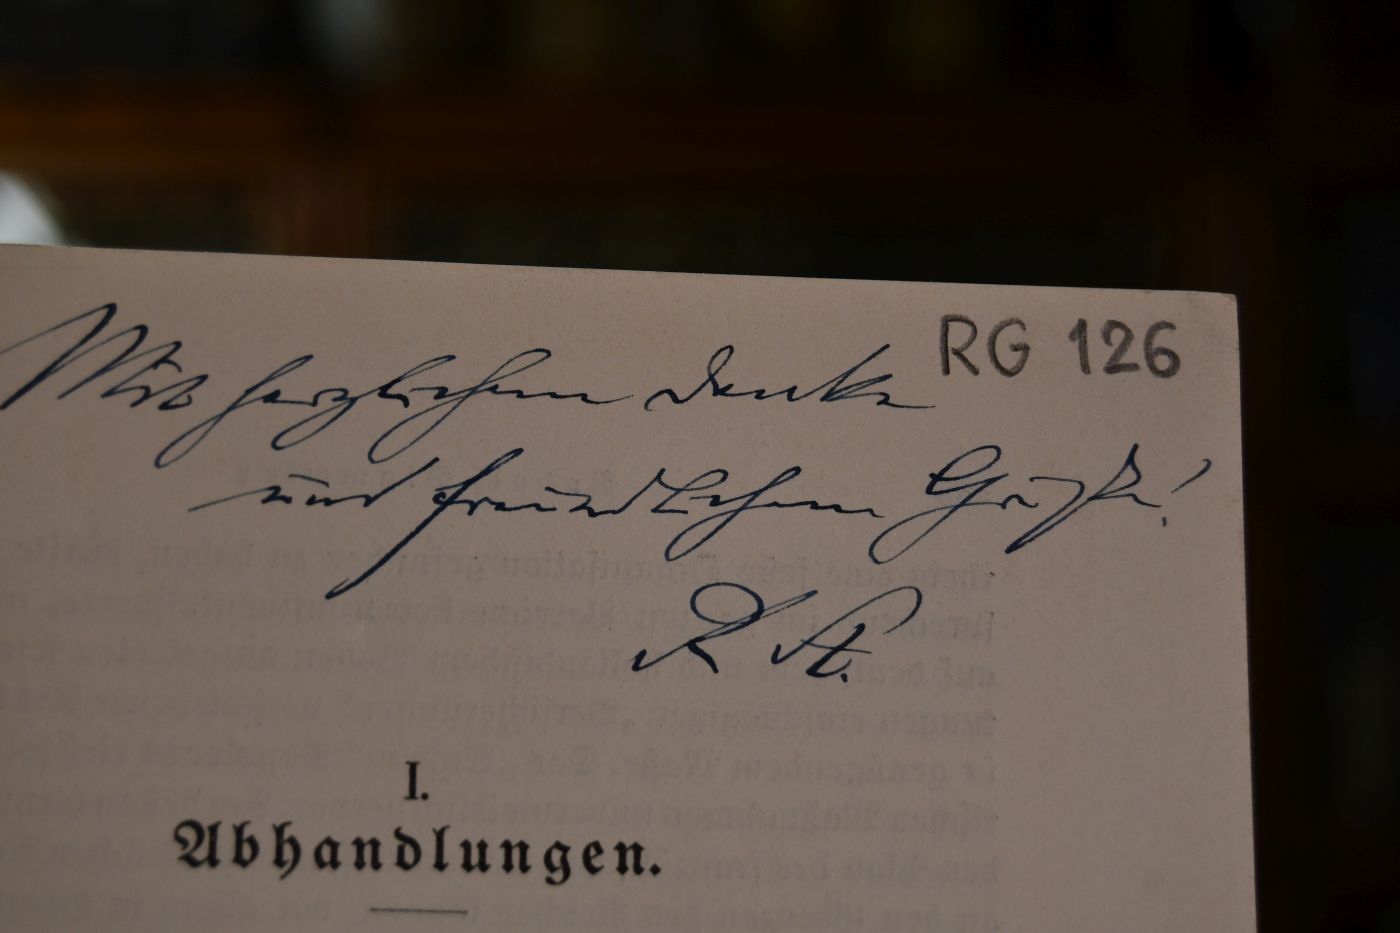 Mit herzlichem Danke
RG 126
und freundlichem Gruße!
R St.
I.
Abhandlungen.